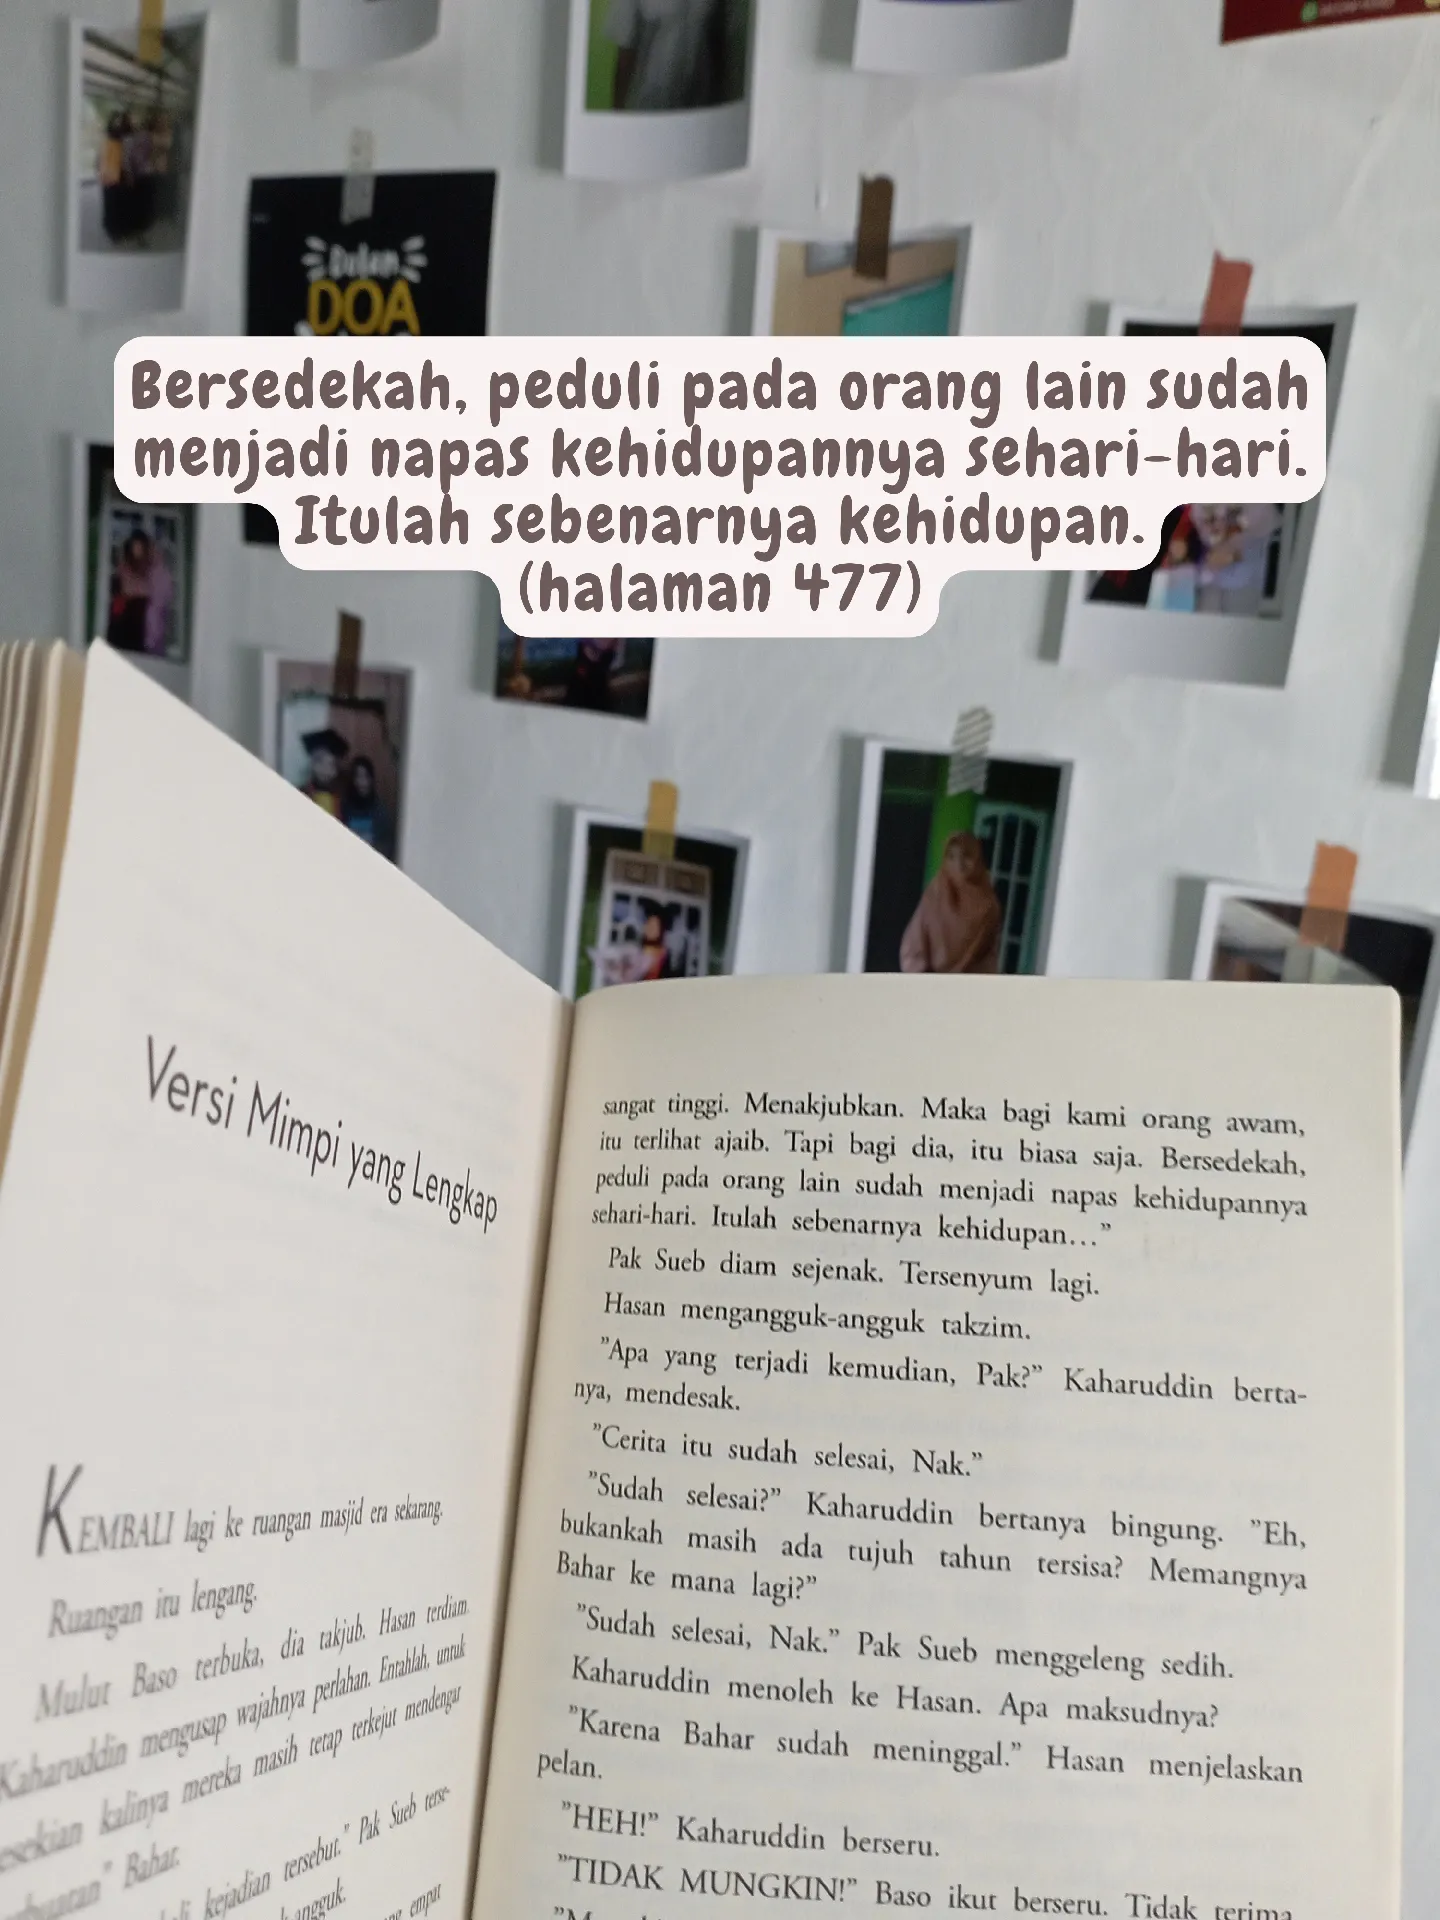 Dalam
DOA
Bersedekah, peduli pada orang lain sudah
menjadi napas kehidupannya sehari-hari.
Itulah sebenarnya kehidupan.
(halaman 477)
Versi Mimpi yang Lengkap
KEMBALI lagi ke ruangan masjid era sekarang.
Ruangan itu lengang.
Mulut Baso terbuka, dia takjub. Hasan terdiam.
Kaharuddin mengusap wajahnya perlahan. Entahlah, untuk
kalinya mereka masih tetap terkejut mendengar
Bahar.
kejadian tersebut.” Pak Sueb terse-
empat
sangat tinggi. Menakjubkan. Maka bagi kami orang awam,
itu terlihat ajaib. Tapi bagi dia, itu biasa saja. Bersedekah,
peduli pada orang lain sudah menjadi napas kehidupannya
sehari-hari. Itulah sebenarnya kehidupan...”
Pak Sueb diam sejenak. Tersenyum lagi.
Hasan mengangguk-angguk takzim.
”Apa yang terjadi kemudian, Pak?” Kaharuddin berta-
nya, mendesak.
”Cerita itu sudah selesai, Nak.”
”Sudah selesai?” Kaharuddin bertanya bingung. ”Eh,
bukankah masih ada tujuh tahun tersisa? Memangnya
Bahar ke mana lagi?”
”Sudah selesai, Nak.” Pak Sueb menggeleng sedih.
Kaharuddin menoleh ke Hasan. Apa maksudnya?
”Karena Bahar sudah meninggal.” Hasan menjelaskan
pelan.
”HEH!” Kaharuddin berseru.
”TIDAK MUNGKIN!” Baso ikut berseru. Tidak terima.